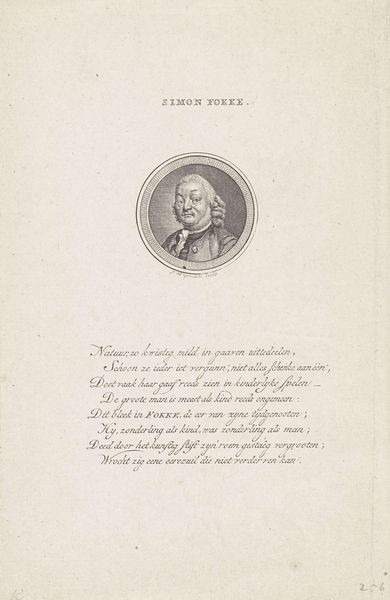 SIMON FOKKE.
Natuur, zo kwistig mild in gaaven uittedeelen,
Schoon ze ieder iet vergunn', niet alles schenke aan één,
Doet vaak haar gaaf reeds zien in kinderlyke spelen —
De groote man is meest als kind reeds ongemeen:
Dit bleek in FOKKE, de eer van zyne tijdgenooten;
Hy, zonderling als kind, was zonderling als man;
Deed door het kunstig stift zyn' roem gestaêg vergrooten;
Wrocht zig eene eerezuil die niet verderven kan.
256